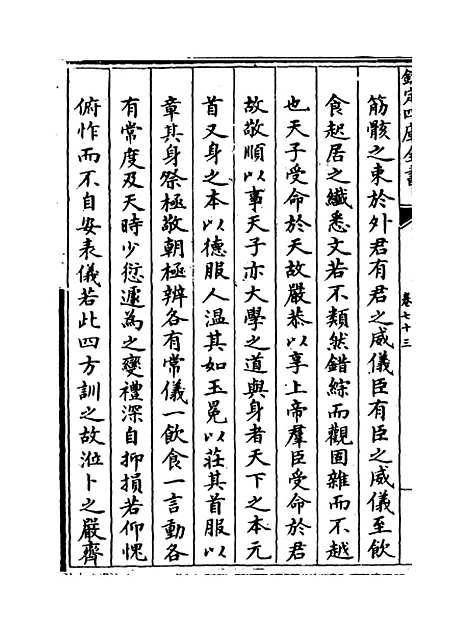 欽定四庫全書
卷七十三
筋骸之束於外君有君之威儀臣有臣之威儀至飲
食起居之纖悉文若不類然錯綜而觀固雜而不越
也天子受命於天故嚴恭以享上帝羣臣受命於君
故敬順以事天子亦大學之道與身者天下之本元
首又身之本以德服人温其如玉冕以莊其首服以
章其身祭極敬朝極辨各有常儀一飲食一言動各
有常度及天時少愆遽為之變禮深自抑損若仰愧
俯怍而不自安表儀若此四方訓之故涖卜之嚴齊